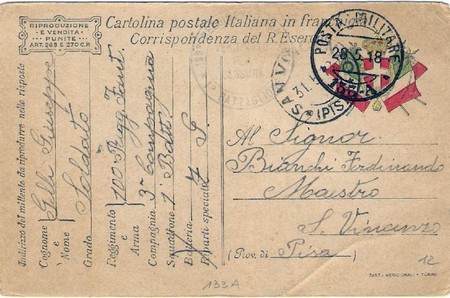 RIPRODUZIONE
E VENDITA
PUNITE
ART. 268 E 270 C.P.
Cartolina postale Italiana in fran
Corrispondenza del R. Eser
POSTA MILITARE
28.5.18
133-A
SAN V
31.
(PISA)
Indirizzo del mittente da riprodursi nelle risposte
Cognome e Nome Gelli Giuseppe
Grado Soldato
Reggimento e Arma 100 Regg. Fant.
Compagnia 3ª Compagnia
Squadrone 1° Batt.
Batteria
Reparti speciali Z S.
Al Signor
Bianchi Ferdinando
Maestro
S. Vincenzo
(Prov. di Pisa)
133A
12